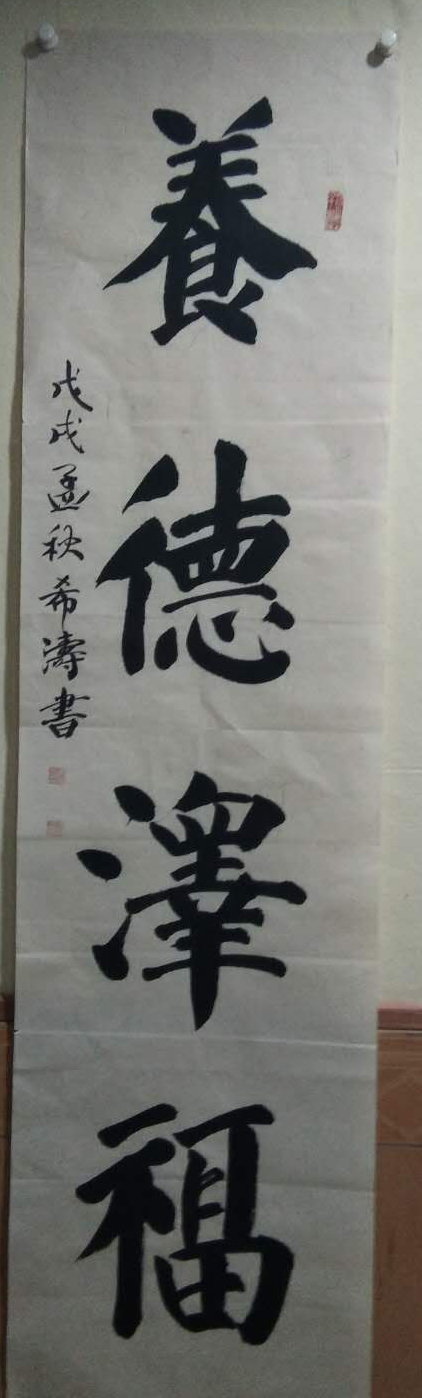 養德澤福
戊戌孟秋希濤書